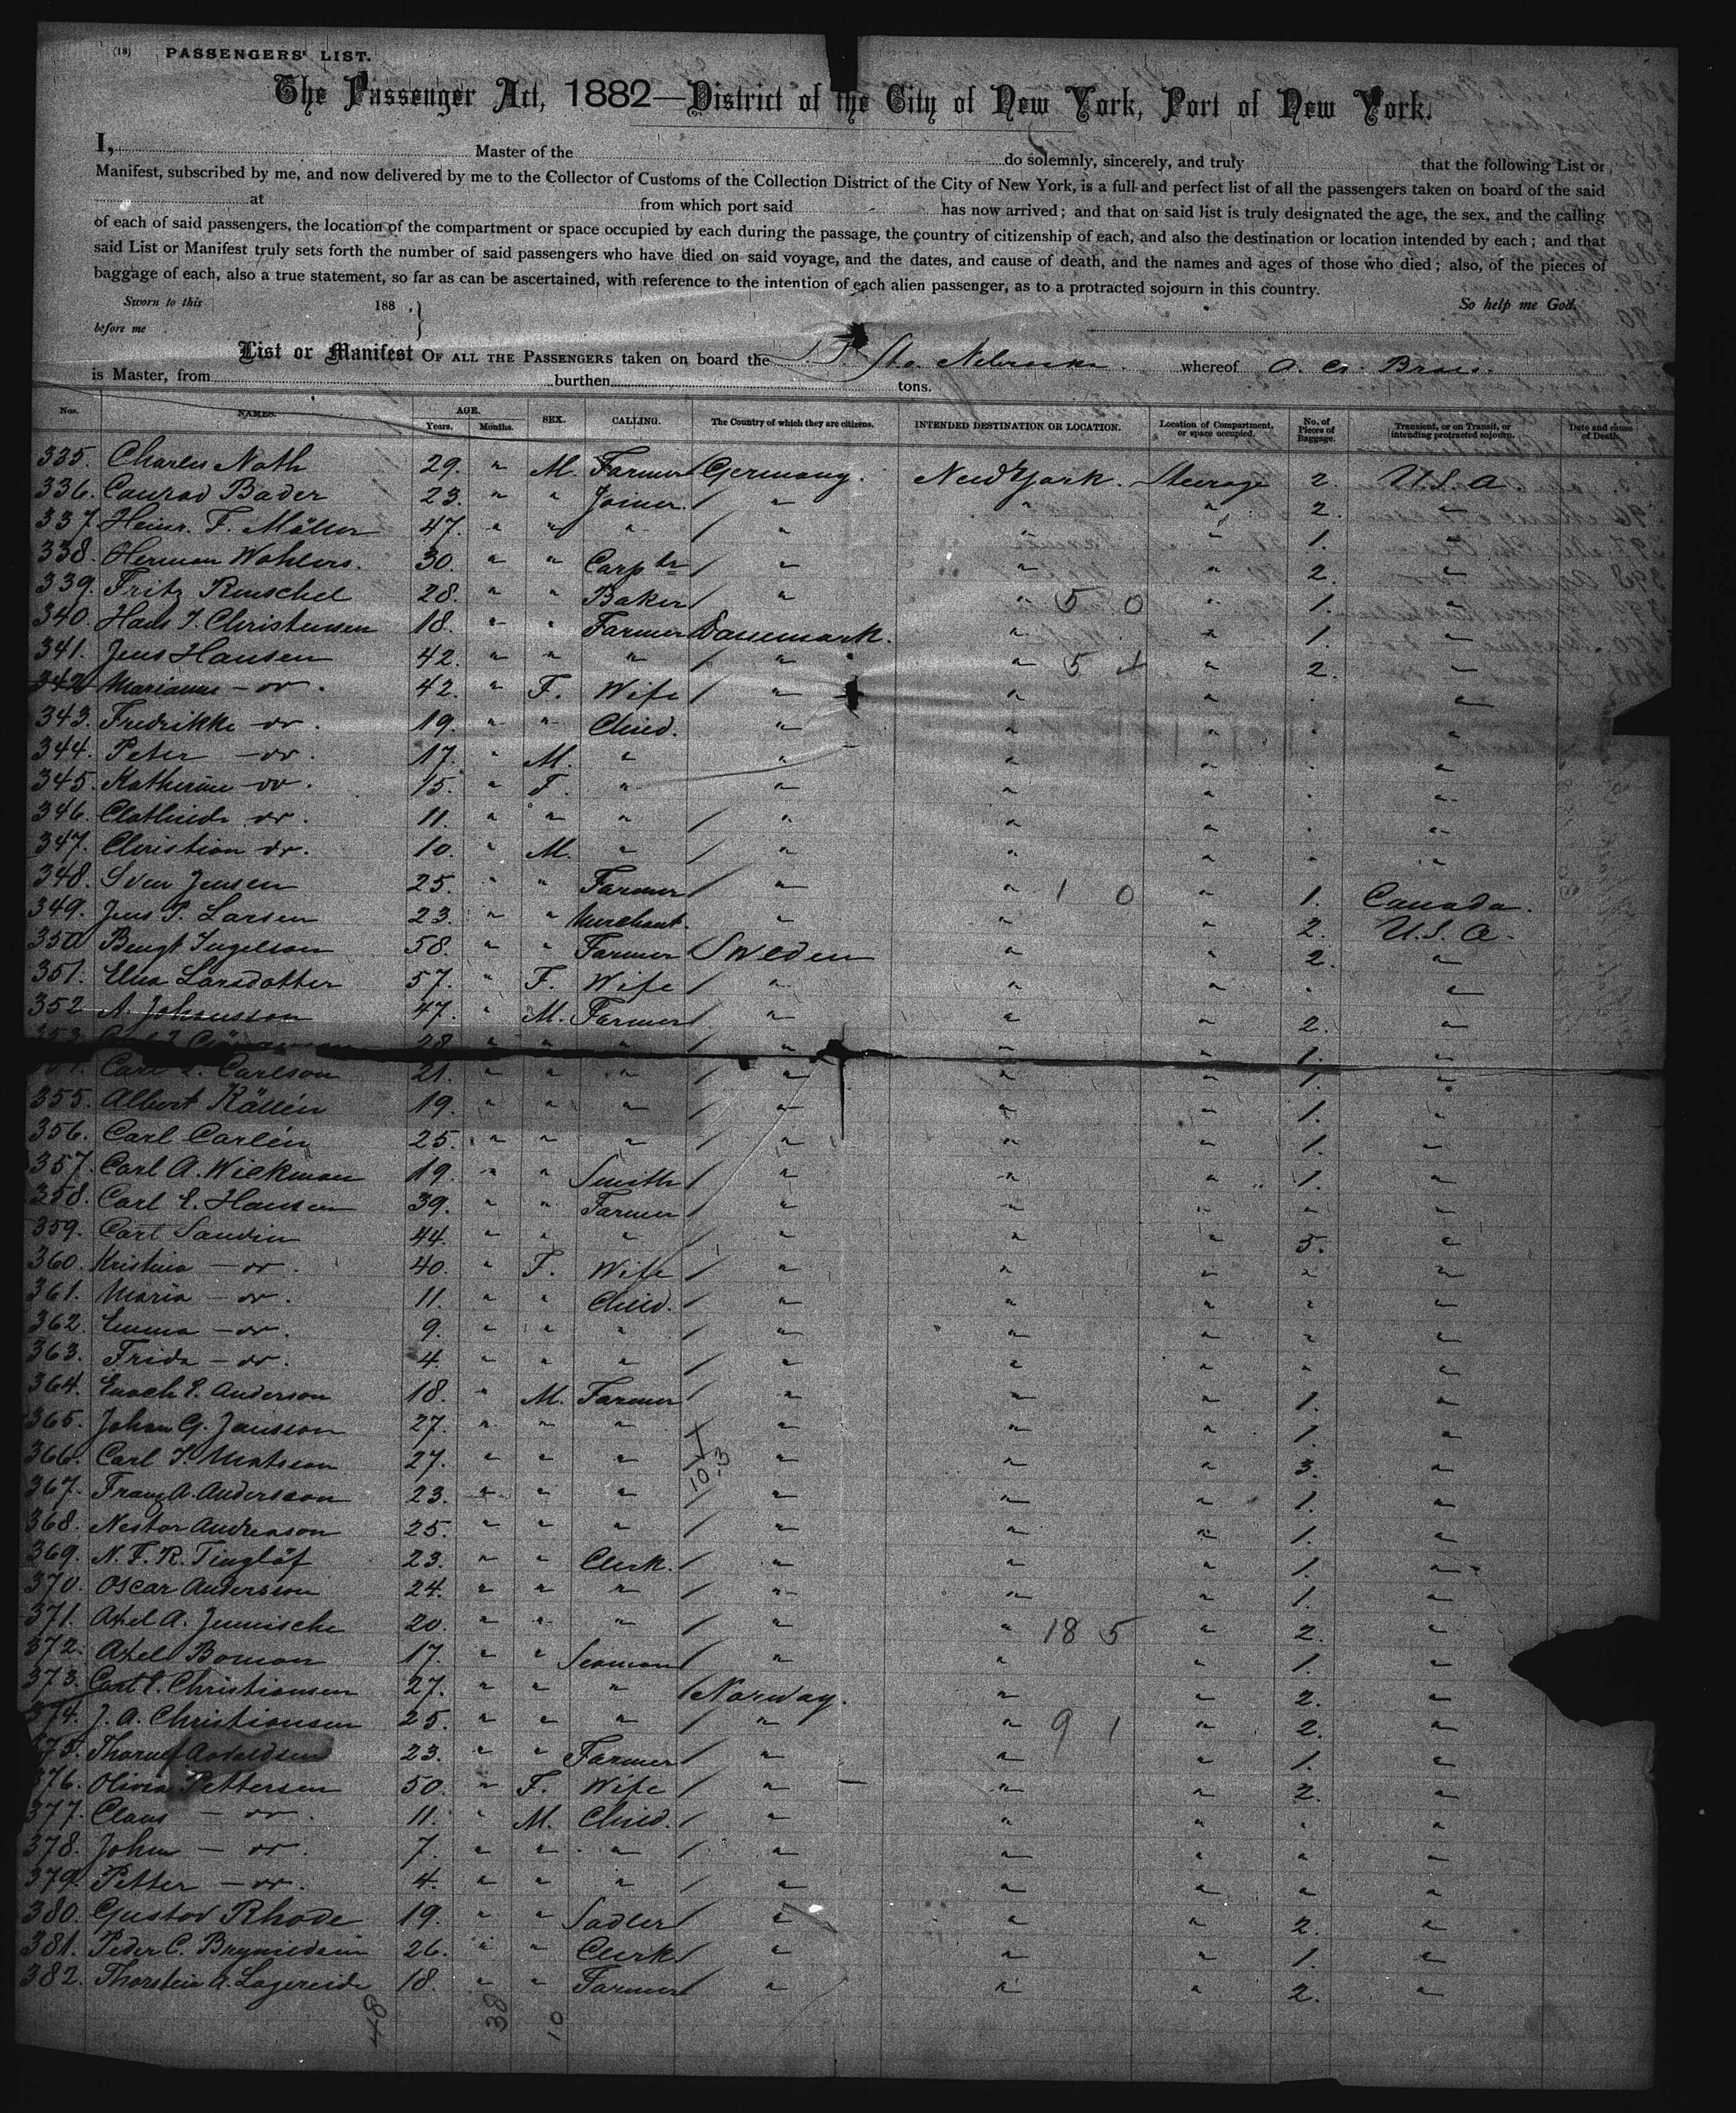 (18) PASSENGERS' LIST.
The Passenger Act, 1882—District of the City of New York, Port of New York.
I, Master of the do solemnly, sincerely, and truly that the following List or
Manifest, subscribed by me, and now delivered by me to the Collector of Customs of the Collection District of the City of New York, is a full and perfect list of all the passengers taken on board of the said
at from which port said has now arrived; and that on said list is truly designated the age, the sex, and the calling
of each of said passengers, the location of the compartment or space occupied by each during the passage, the country of citizenship of each, and also the destination or location intended by each; and that
said List or Manifest truly sets forth the number of said passengers who have died on said voyage, and the dates, and cause of death, and the names and ages of those who died; also, of the pieces of
baggage of each, also a true statement, so far as can be ascertained, with reference to the intention of each alien passenger, as to a protracted sojourn in this country.
Sworn to this 188 , } So help me God.
before me
List or Manifest OF ALL THE PASSENGERS taken on board the Nebraska whereof A. G.
is Master, from burthen tons.
Nos. NAMES. AGE. Years. Months. SEX. CALLING. The Country of which they are citizens. INTENDED DESTINATION OR LOCATION. Location of Compartment, or space occupied. No. of Pieces of Baggage. Transient, or on Transit, or intending protracted sojourn. Date and cause of Death.
335. Charles Noth 29. " M. Farmer Germany. New York. Steerage 2. U.S.A.
336. Conrad Bader 23. " " Joiner / " " " 2. "
337. Heinr. F. Möller 47. " " " / " " " 1. "
338. Herman Wohlers. 30. " " Carptr / " " " 2. "
339. Fritz Renschel 28. " " Baker / " " 5 0 " 1. "
340. Hans J. Christensen 18. " " Farmer Dannemark. " " 1. "
341. Jens Hansen 42. " " " / " " 5 1 " 2. "
342 Marianne - do. 42. " F. Wife / " " " . "
343. Fredrikke - do. 19. " " Child. " " " . "
344. Peter - do. 17. " M. " " " " . "
345. Katherine - do. 15. " F. " " " " . "
346. do. 11. " " " / " " " . "
347. Christian do. 10. " M. " / " " " . "
348. Sven Jensen 25. " " Farmer / " " 1 0 " 1. Canada.
349. Jens P. Larsen 23. " " Merchant. " " " 2. U.S.A.
350 Bengt Ingelson 58. " " Farmer Sweden " " 2. "
351. Elna Larsdotter 57. " F. Wife / " " " . "
352 A. Johansson 47. " M. Farmer / " " " 2. "
353. 28. " " " / " " " 1. "
Carl Carlson 21. " " " / " " " 1. "
355. Albert Källén 19. " " " / " " " 1. "
356. Carl Carlén 25. " " " / " " " 1. "
357. Carl A. Wickman 19. " " Smith / " " " 1. "
358. Carl E. Hansen 39. " " Farmer / " " " " "
359. Carl Sandin 44. " " " / " " " 5. "
360. Kristina - do. 40. " F. Wife / " " " " "
361. Maria - do. 11. " " Child. / " " " " "
362. Emma - do. 9. " " " / " " " " "
363. Frida - do. 4. " " " / " " " " "
364. Enoch E. Anderson 18. " M. Farmer / " " " 1. "
365. Johan G. Jansson 27. " " " / " " " 1. "
366. Carl J. Matsson 27. " " " 10.3 " " " 3. "
367. Franz A. Andersson 23. " " " / " " " 1. "
368. Nestor Andreason 25. " " " / " " " 1. "
369. N. F. R. Tinglöf 23. " " Clerk. / " " " 1. "
370. Oscar Andersson 24. " " " / " " " 1. "
371. Axel A. 20. " " " / " " 18 5 " 2. "
372. Axel Boman 17. " " Seaman / " " " 1. "
373. Carl E. Christiansen 27. " " " / Norway. " " 2. "
374. J. A. Christiansen 25. " " " / " " 9 1 " 2. "
375. 23. " " Farmer / " " " 1. "
376. Olivia Pettersen 50. " F. Wife / " — " " 2. "
377. Claus - do. 11. " M. Child. / " " " " "
378. Johan - do. 7. " " " / " " " " "
379. Petter - do. 4. " " " / " " " " "
380. Gustav Rhode 19. " " Sadler / " " " 2. "
381. Peder C. Brynildsen 26. " " Clerk / " " " 1. "
382. Thorstein A. 18. " " Farmer / " " " 2. "
48 38 10